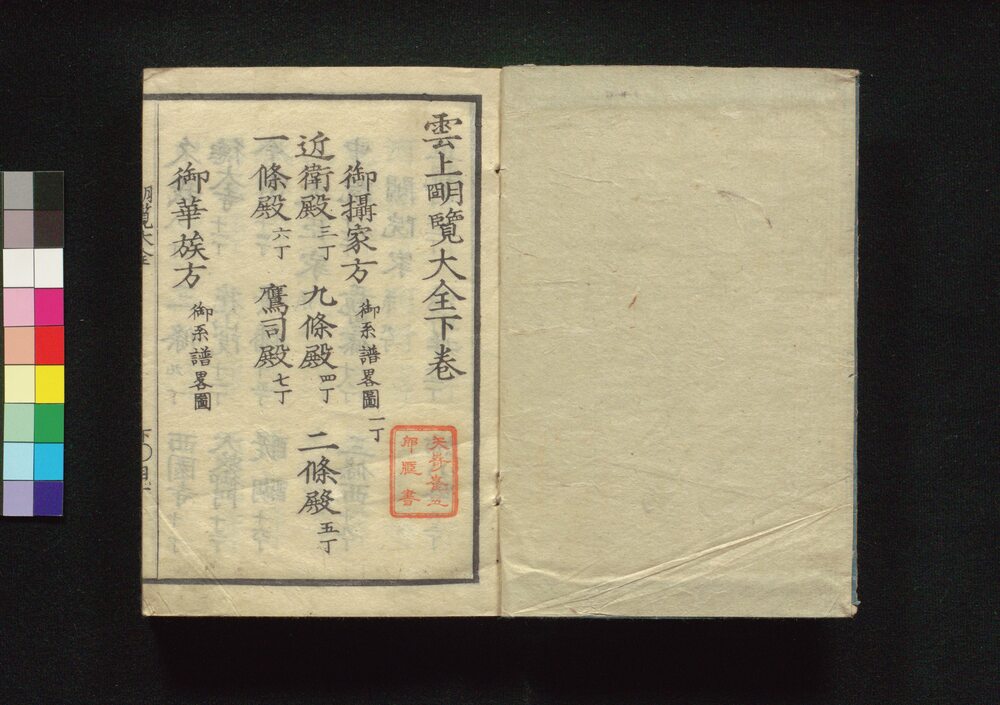 雲上明覽大全下卷
御攝家方 御系譜畧圖 一丁
近衛殿 三丁 九條殿 四丁 二條殿 五丁
一條殿 六丁 鷹司殿 七丁
御華族方 御系譜畧圖
明覽大全